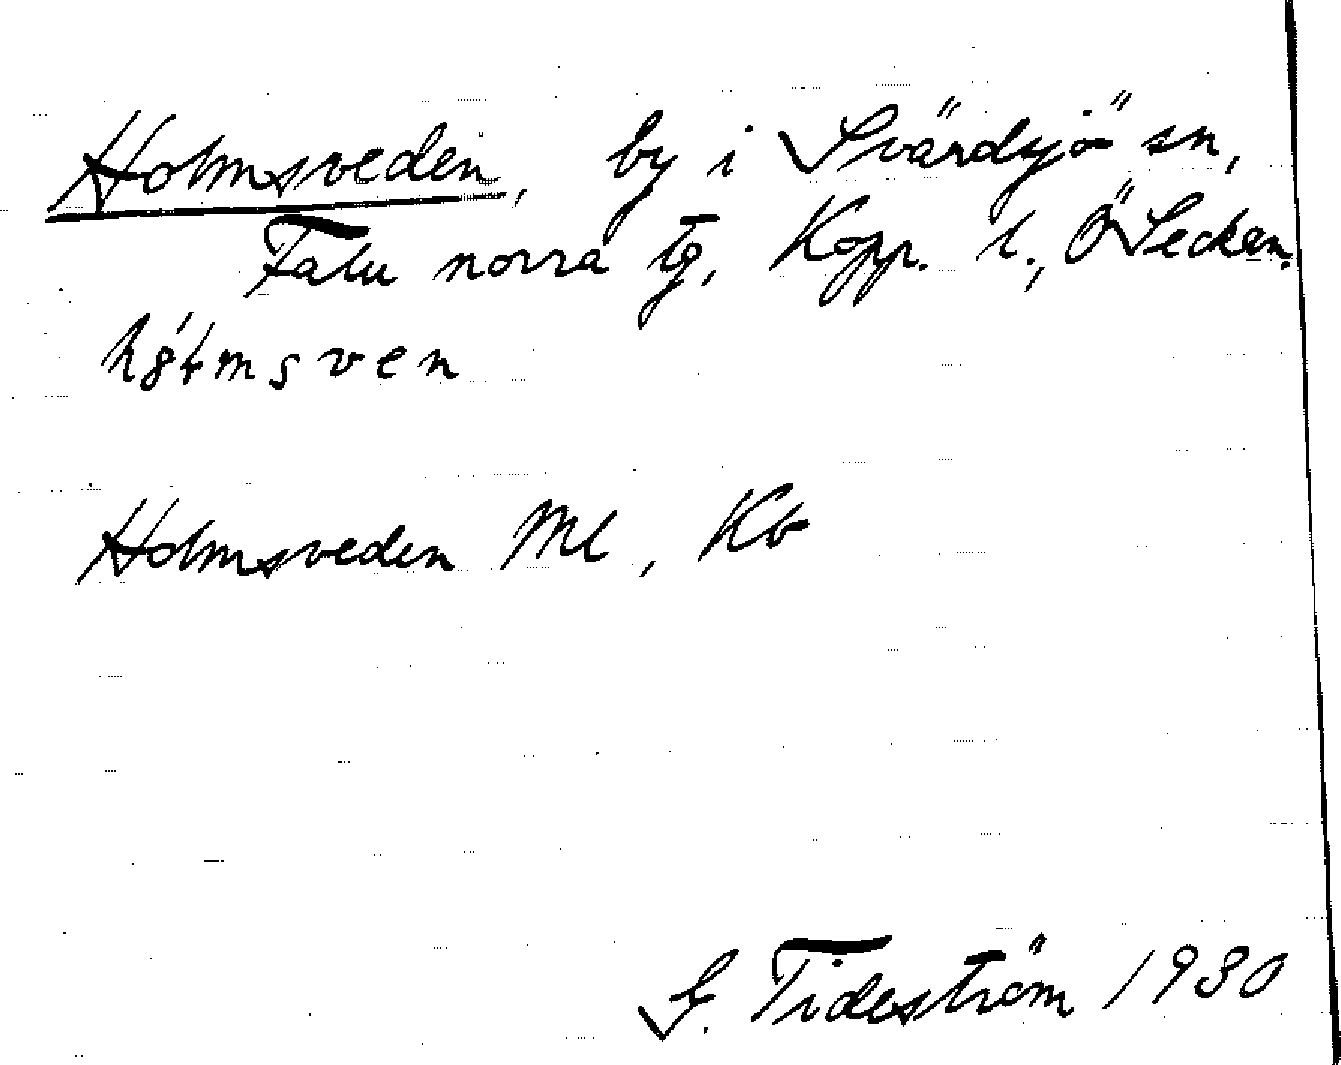 Holmsveden, by i Svärdsjö sn,
Falu norra tg, Kopp. l., Ö Secken.
Holmsveden Ml, Kb
G. Tideström 1930